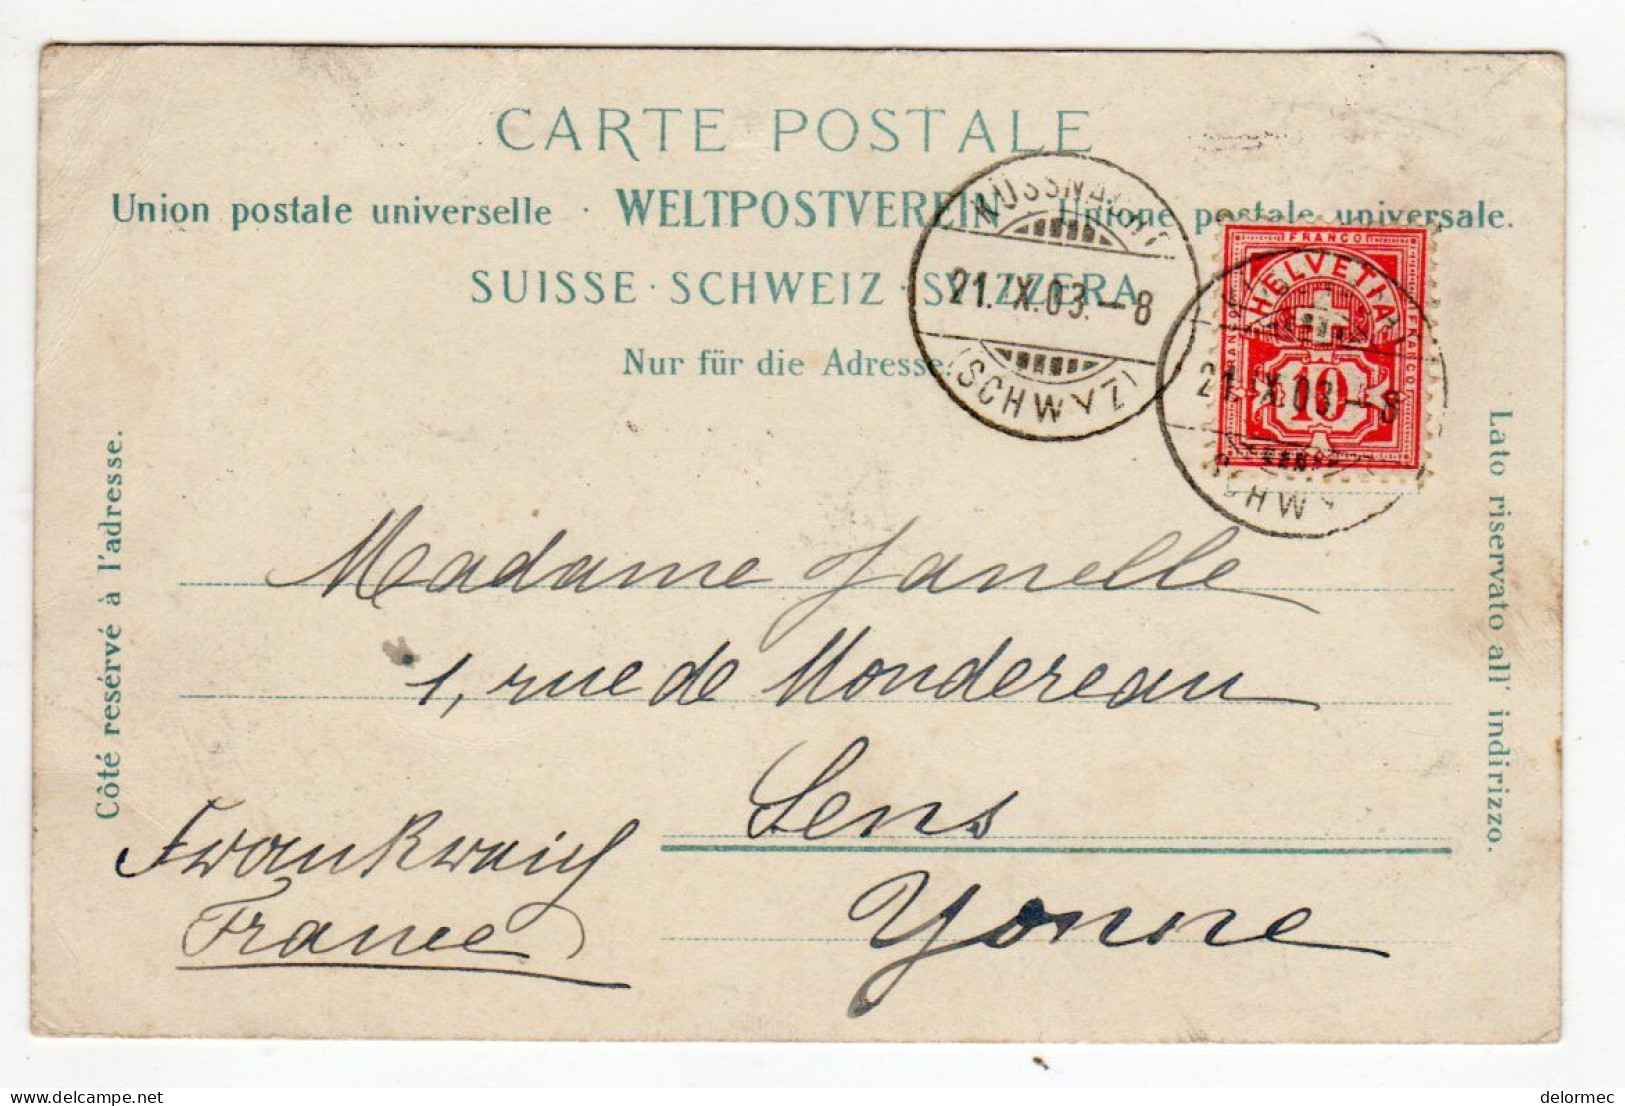 CARTE POSTALE
Union postale universelle · WELTPOSTVEREIN · Unione postale universale.
SUISSE · SCHWEIZ · SVIZZERA
Nur für die Adresse.
KÜSSNACHT
21.IX.03.—8
(SCHWYZ)
FRANCO
HELVETIA
FRANCO
10
21.IX.03—8
SCHWY
Côté resérvé à l'adresse.
Lato riservato all' indirizzo.
Madame Janelle
1, rue de Mondereau
Sens
Frankreich
Yonne
France
delormec